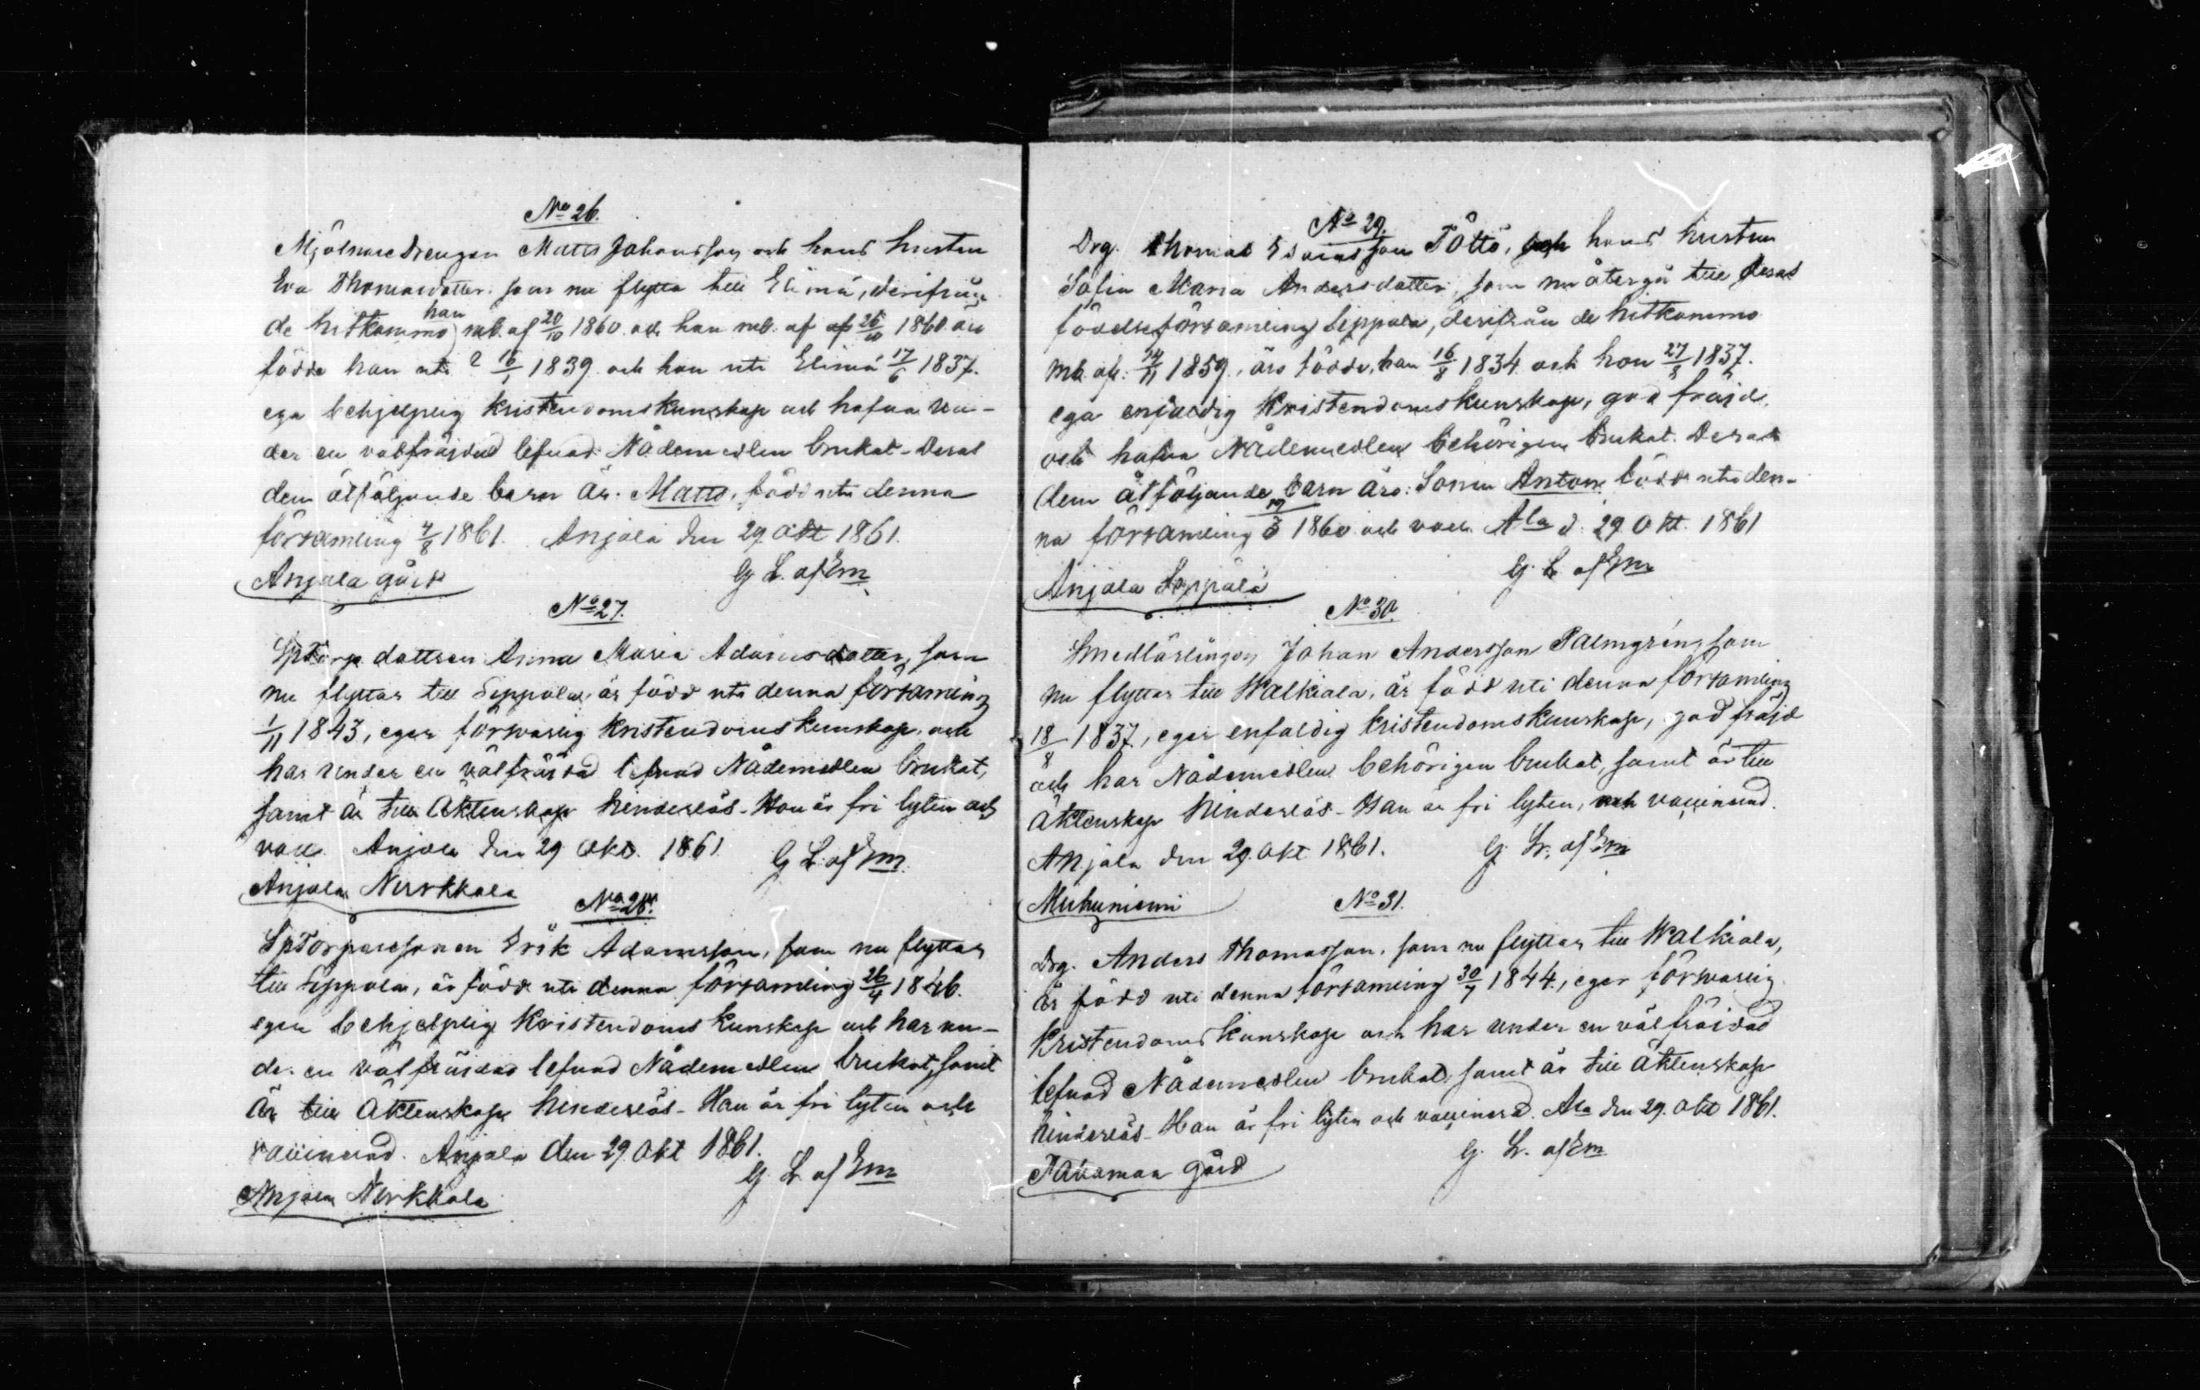 No 26.
Mjölnaredrengen Matts Johansson och hans hustru
Eva Thomasdotter som nu flytta till Elimä, derifrån
de hitkommo han mb. af 20/10 1860 och hon mb. af 26/10 1860 äro
födde han uti ? 16/1 1839 och hon uti Elimä 17/6 1837.
ega behjelplig kristendomskunskap och hafva un-
der en välfräjdad lefnad Nådemedlen brukat - Deras
dem åtföljande barn är: Matts, född uti denna
församling 4/8 1861. Anjala den 29 Okt 1861.
G L af Em
Anjala gård
No 27.
SpTorp dottren Anna Maria Adamsdotter, som
nu flyttar till Sippola, är född uti denna församling
1/11 1843, eger försvarlig kristendomskunskap och
har under en välfräjdad lefnad Nådemedlen brukat,
samt är till Äktenskap hinderlös - Hon är fri lyten och
vacc. Anjala den 29 Okt. 1861
G L. af Em.
Anjala Nurkkala
No 28.
SpTorparesonen Erik Adamsson, som nu flyttar
till Sippola, är född uti denna församling 26/4 1846.
eger behjelplig Kristendoms kunskap och har un-
der en välfräjdad lefnad Nådemedlen brukat, samt
är till Äktenskap hinderlös - Han är fri lyten och
vaccinerad. Anjala den 29 Okt 1861.
G. L af Em
Anjala Nurkkala
No 29.
Drg. Thomas Töttö, och hans hustru
Sofia Maria Andersdotter, som nu återgå till deras
födelseförsamling Sippola, derifrån de hitkommo
mb. af. 14/11 1859, äro födde, han 16/8 1834 och hon 27/5 1837.
ega enfaldig Kristendomskunskap, god fräjd,
och hafva Nådemedlen behörigen brukat. Deras
dem åtföljande barn äro: Sonen Anton född uti den-
na församling 19/3 1860 och vacc. Ala d. 29 Okt. 1861
G. L af Em
Anjala Seppälä
No 30.
Smedlärlingen Johan Andersson Palmgrén, som
nu flyttar till Walkiala, är född uti denna församling
18/8 1837, eger enfaldig kristendomskunskap, god fräjd
och har Nådemedlen behörigen brukat, samt är till
Äktenskap hinderlös - Han är fri lyten, och vaccinerad.
Anjala den 29. Okt 1861.
G. L. af Em
Muhuniemi
No 31.
Drg. Anders Thomasson, som nu flyttar till Walkiala,
är född uti denna församling 30/7 1844, eger försvarlig
Kristendomskunskap och har under en välfräjdad
lefnad Nådemedlen brukat, samt är till Äktenskap
hinderlös - Han är fri lyten och vaccinerad. Ala den 29. Okt 1861.
G. L. af Em
gård